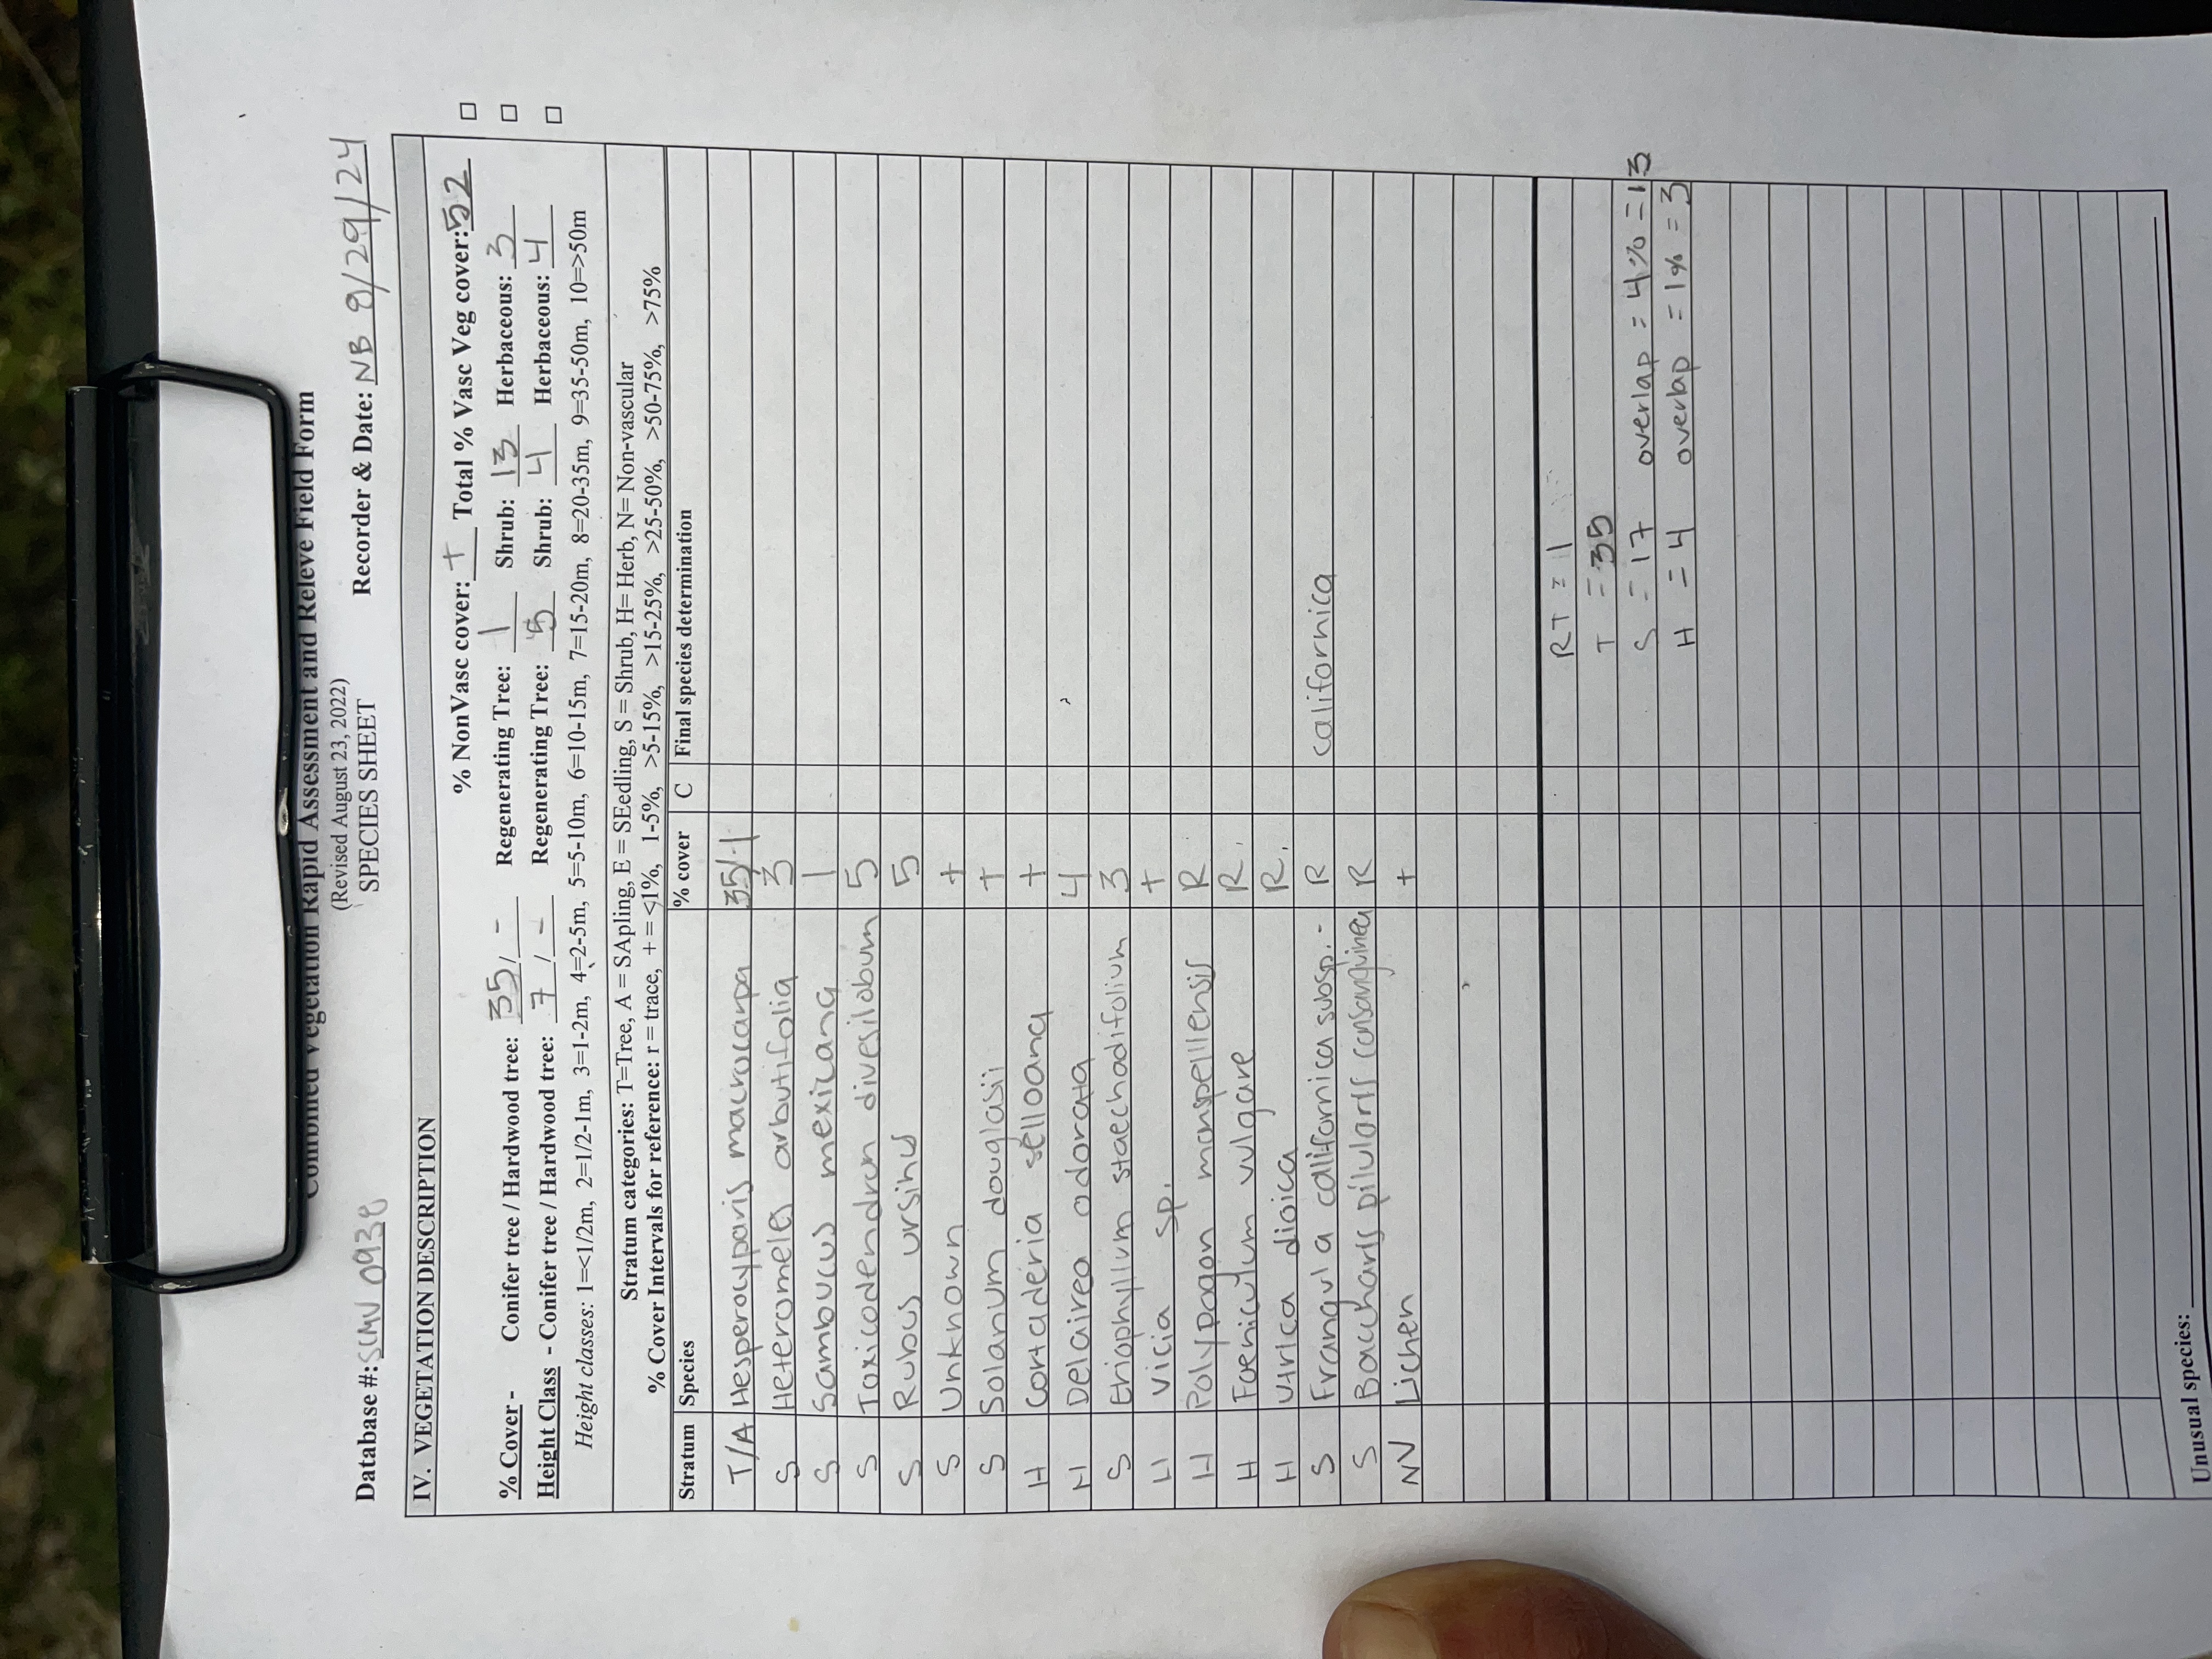 Combined Vegetation Rapid Assessment and Releve Field Form
(Revised August 23, 2022)
SPECIES SHEET
Database #: SCMV 0938 Recorder & Date: NB 8/29/24
IV. VEGETATION DESCRIPTION
% NonVasc cover: + Total % Vasc Veg cover: 52
% Cover - Conifer tree / Hardwood tree: 35 / - Regenerating Tree: 1 Shrub: 13 Herbaceous: 3
Height Class - Conifer tree / Hardwood tree: 7 / - Regenerating Tree: 5 Shrub: 4 Herbaceous: 4
Height classes: 1=<1/2m, 2=1/2-1m, 3=1-2m, 4=2-5m, 5=5-10m, 6=10-15m, 7=15-20m, 8=20-35m, 9=35-50m, 10=>50m
Stratum categories: T=Tree, A = SApling, E = SEedling, S = Shrub, H= Herb, N= Non-vascular
% Cover Intervals for reference: r = trace, + = <1%, 1-5%, >5-15%, >15-25%, >25-50%, >50-75%, >75%
Stratum Species % cover C Final species determination
T/A Hesperocyparis macrocarpa 35/1
S Heteromeles arbutifolia 3
S Sambucus mexicana 1
S Toxicodendron divesilobum 5
S Rubus ursinus 5
S Unknown +
S Solanum douglasii +
H Cortaderia selloana +
H Delairea odorata 4
S Eriophyllum staechadifolium 3
H Vicia sp. +
H Polypogon monspelliensis R
H Foeniculum vulgare R.
H Urtica dioica R.
S Frangula californica subsp. - R californica
S Baccharis pilularis consanguinea R
NV Lichen +
RT = 1
T = 35
S = 17 overlap = 4% = 13
H = 4 overlap = 1% = 3
Unusual species: